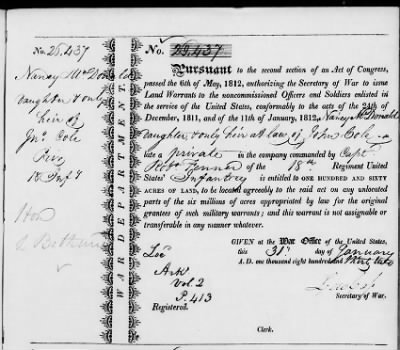 No. 26.437
Nancy McDonald
daughter & only
heir of
Jno. Cole
18 Inf'y
Hon
WAR DEPARTMENT.
No. 26.437
Pursuant to the second section of an Act of Congress,
passed the 6th of May, 1812, authorizing the Secretary of War to issue
Land Warrants to the noncommissioned Officers and Soldiers enlisted
in the service of the United States, conformably to the acts of the 24th of
December, 1811, and of the 11th of January, 1812, Nancy McDonald
daughter & only heir at law of John Cole
late a private in the company commanded by Capt.
of the 18th Regiment United
States' Infantry is entitled to ONE HUNDRED AND SIXTY
ACRES OF LAND, to be located agreeably to the said act on any unlocated
parts of the six millions of acres appropriated by law for the original
grantees of such military warrants; and this warrant is not assignable or
transferable in any manner whatever.
GIVEN at the War Office of the United States,
this 31st day of January
A.D. one thousand eight hundred and
Secretary of War.
Loc
Ark
Vol. 2
P. 413
Registered.
Clerk.